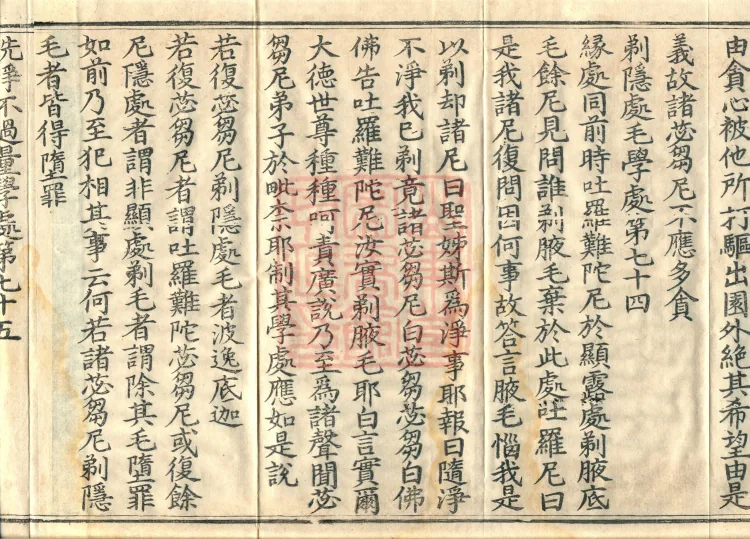 由貪心被他所打驅出園外絕其希望由是
義故諸苾芻尼不應多貪
剃隱處毛學處第七十四
緣處同前時吐羅難陀尼於顯露處剃腋底
毛餘尼見問誰剃腋毛棄於此處吐羅尼曰
是我諸尼復問因何事故答言腋毛惱我是
以剃却諸尼曰聖姊斯為淨事耶報曰隨淨
不淨我已剃竟諸苾芻尼白苾芻苾芻白佛
佛告吐羅難陀尼汝實剃腋毛耶白言實爾
大德世尊種種呵責廣說乃至為諸聲聞苾
芻尼弟子於毗柰耶制其學處應如是說
若復苾芻尼剃隱處毛者波逸底迦
若復苾芻尼者謂吐羅難陀苾芻尼或復餘
尼隱處者謂非顯處剃毛者謂除其毛墮罪
如前乃至犯相其事云何若諸苾芻尼剃隱
毛者皆得墮罪
洗淨不過量學處第七十五